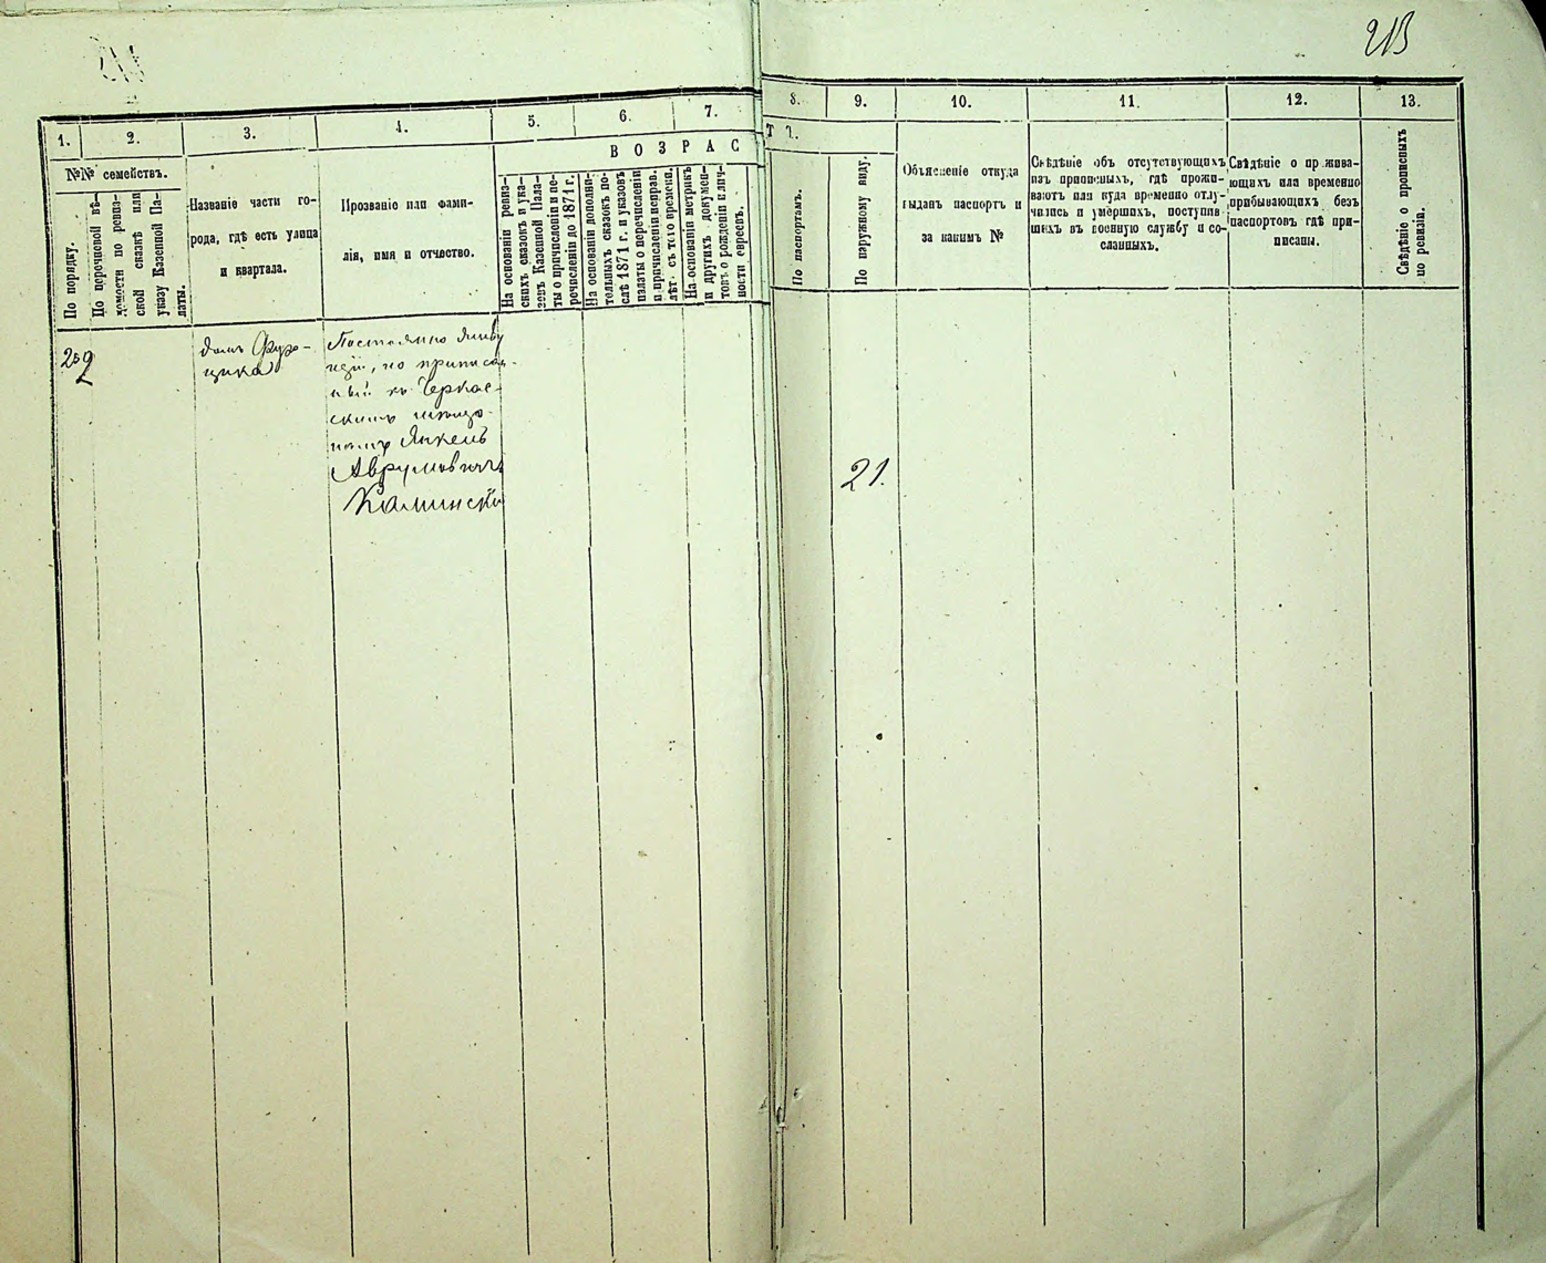 213
1. 2. 3. 4. 5. 6. 7. 8. 9. 10. 11. 12. 13.
№№ семействъ.
По порядку.
По перечневой вѣ-
домости по ревиз-
ской сказкѣ или
указу Казенной Па-
латы.
Названіе части го-
рода, гдѣ есть улица
и квартала.
Прозваніе или фами-
лія, имя и отчество.
ВОЗРАСТ
На основаніи ревиз-
скихъ сказокъ и ука-
зовъ Казенной Пала-
ты о причисленіи и пе-
речисленіи до 1871 г.
На основаніи дополни-
тельныхъ сказокъ по-
слѣ 1871 г. и указовъ
палаты о перечисленіи
и причисленіи неправ.
лѣт. съ того времени.
На основаніи метрикъ
и другихъ докумен-
товъ о рожденіи и лич-
ности евреевъ.
По паспортамъ.
По наружному виду.
Объясненіе откуда
выданъ паспортъ и
за какимъ №
Свѣдѣніе объ отсутствующихъ
изъ приписныхъ, гдѣ прожи-
ваютъ или куда временно отлу-
чились и умершихъ, поступив-
шихъ въ военную службу и со-
сланныхъ.
Свѣдѣніе о прожива-
ющихъ или временно
прибывающихъ безъ
паспортовъ гдѣ при-
писаны.
Свѣдѣніе о прописныхъ
по ревизіи.
209
домъ
Постоянно живу
щій, но приписан-
ный къ Черкас-
скимъ
Янкель
Аврумовичъ
Каминскій
21.